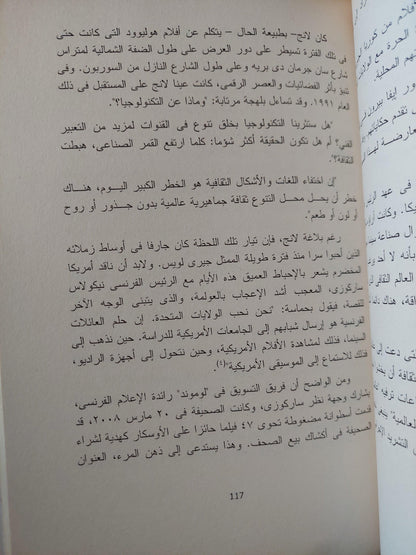 كان لانج – بطبيعة الحال – يتكلم عن أفلام هوليوود التى كانت حتى
فى تلك الفترة تسيطر على دور العرض على طول الضفة الشمالية لمتراس
شارع سان جرمان دى بريه وعلى طول الشارع النازل من السوربون. وفى
تنبؤ بأثر الفضائيات والعصر الرقمى، كانت عينا لانج على المستقبل فى ذلك
العام ١٩٩١. وقد تساءل بلهجة مرتابة: "وماذا عن التكنولوجيا؟".
"هل ستثرينا التكنولوجيا بخلق تنوع فى القنوات لمزيد من التعبير
الفنى؟ أم هل تكون الحقيقة أكثر شؤما: كلما ارتفع القمر الصناعى، هبطت
الثقافة؟".
"إن اختفاء اللغات والأشكال الثقافية هو الخطر الكبير اليوم، هناك
خطر أن يحل محل التنوع ثقافة جماهيرية عالمية بدون جذور أو روح
أو لون أو طعم".
رغم بلاغة لانج، فإن تيار تلك اللحظة كان جارفا فى أوساط زملائه
الذين أحبوا سرا منذ فترة طويلة الممثل جيرى لويس. ولابد أن ناقد أمريكا
المخضرم يشعر بالإحباط العميق هذه الأيام مع الرئيس الفرنسى نيكولاس
ساركوزى، المعجب أشد الإعجاب بالعولمة، والذى يتبنى الوجه الآخر
للقصة، فيقول بحماسة: "نحن نحب الولايات المتحدة. إن حلم العائلات
الفرنسية هو إرسال شبابهم إلى الجامعات الأمريكية للدراسة. حين نذهب إلى
السينما، فذلك لمشاهدة الأفلام الأمريكية، وحين نتحول إلى أجهزة الراديو،
فذلك للاستماع إلى الموسيقى الأمريكية"(٤).
ومن الواضح أن فريق التسويق فى "لوموند" رائدة الإعلام الفرنسى،
يشارك وجهة نظر ساركوزى. وكانت الصحيفة فى ٢٠ مارس ٢٠٠٨، قد
قدمت أسطوانة مضغوطة تحوى ٤٧ فيلما حائزا على الأوسكار كهدية لشراء
الصحيفة فى أكشاك بيع الصحف. وهذا يستدعى إلى ذهن المرء، العنوان
117